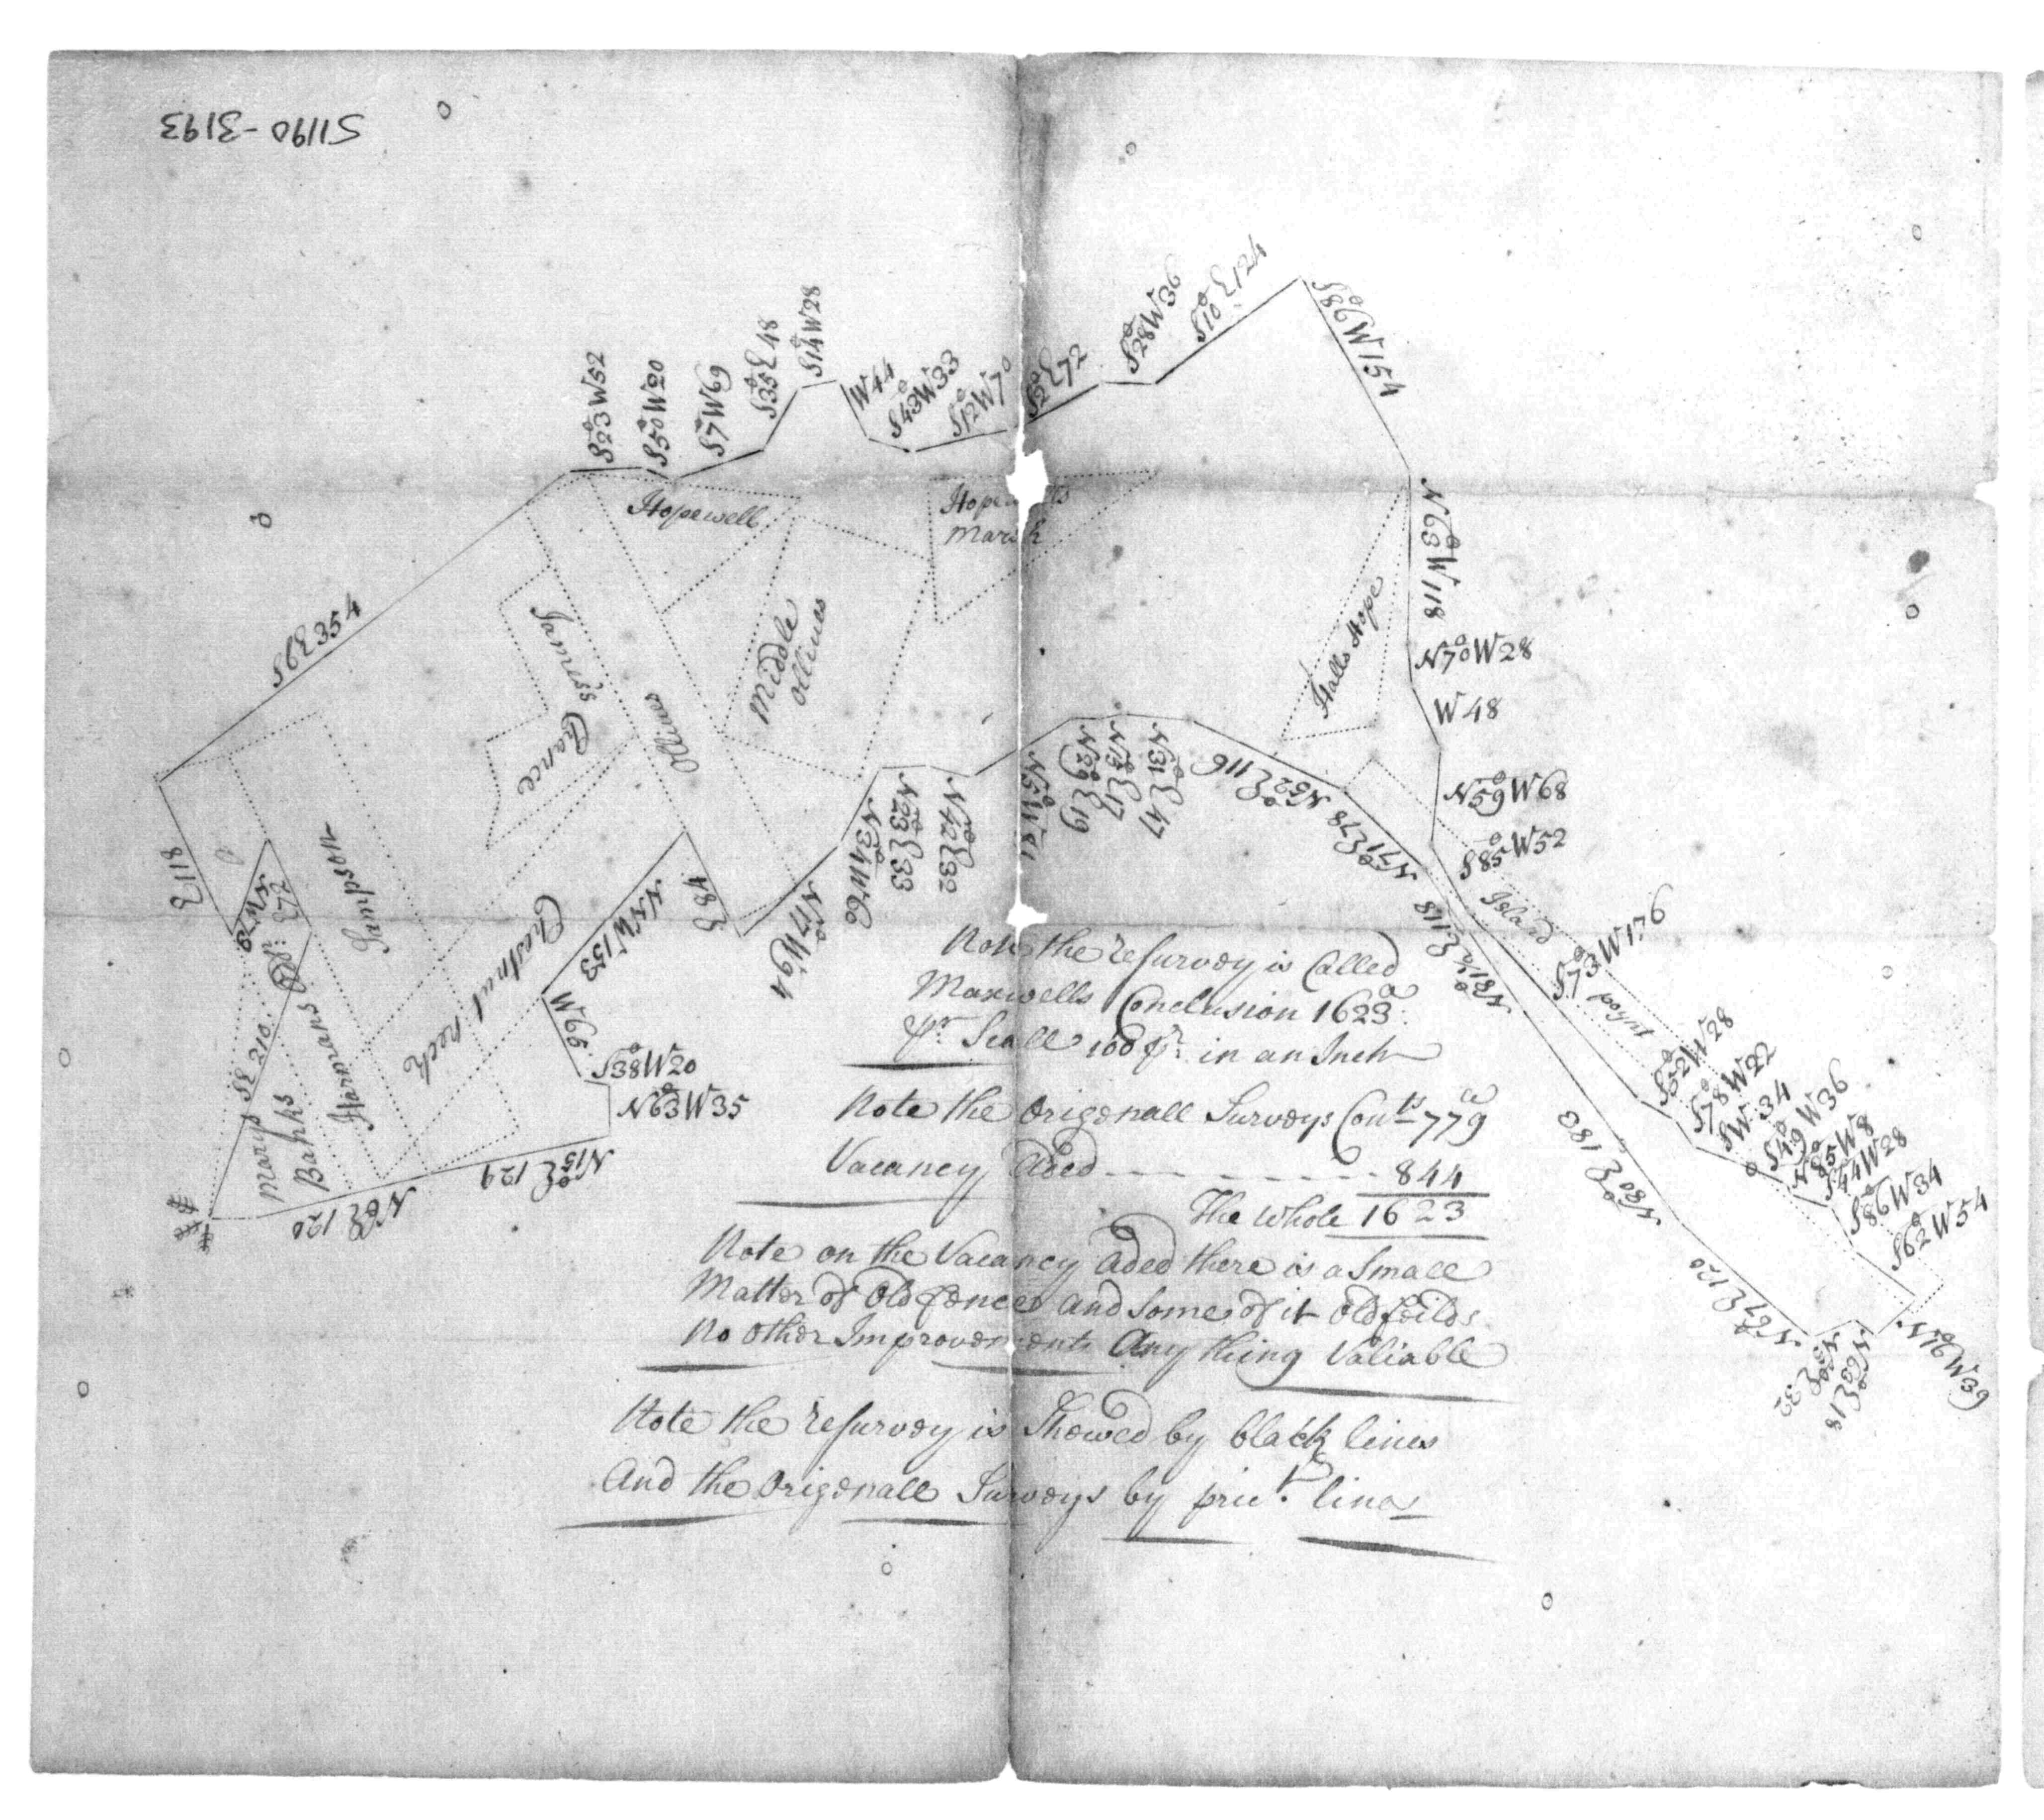 S1190-3193
S23°W52
S50°W20
S7°W69
S35°E48
S14°W28
W44
S43°W33
S12°W70
S5°E72
S28°W36
S10°E124
S89°W154
N63°W118
N70°W28
W48
N59°W68
S85°W52
S73°W176
S52°W28
S78°W22
SW34
S49°W36
N85°W8
S44W28
S86°W34
S62°W54
N19°W39
N63°E18
N67E120
N80°E183
N81½°E118
N71°E78
N62°E116
N31°E47
N13°E17
N29°E19
N5°W81
N42°E32
N23°E33
N34W60
N17°W94
E84
NNW153
W59
S38°W20
N63°W35
N15°E129
N6E120
SE210
E118
S9E354
Hopewell
Hopewells
Marsh
Jamess Chance
Ollives
Middle
Ollives
Halls Hope
Island poynt
Sampson
Harmans
Marys
Banks
Chestnut neck
Note the resurvey is Called
Maxwells Conclusion 1623a
pr Scall 100 pr in an Inch
Note the Origenall Surveys Conts 779 a
Vacancy Aded - - - - - - - 844
The whole 1623
Note on the Vacancy Aded there is a Small
Matter of Old fence and Some of it Old feilds
No other Improvements Any thing Valiable
Note the resurvey is Showed by black lines
And the Origenall Surveys by prict lines